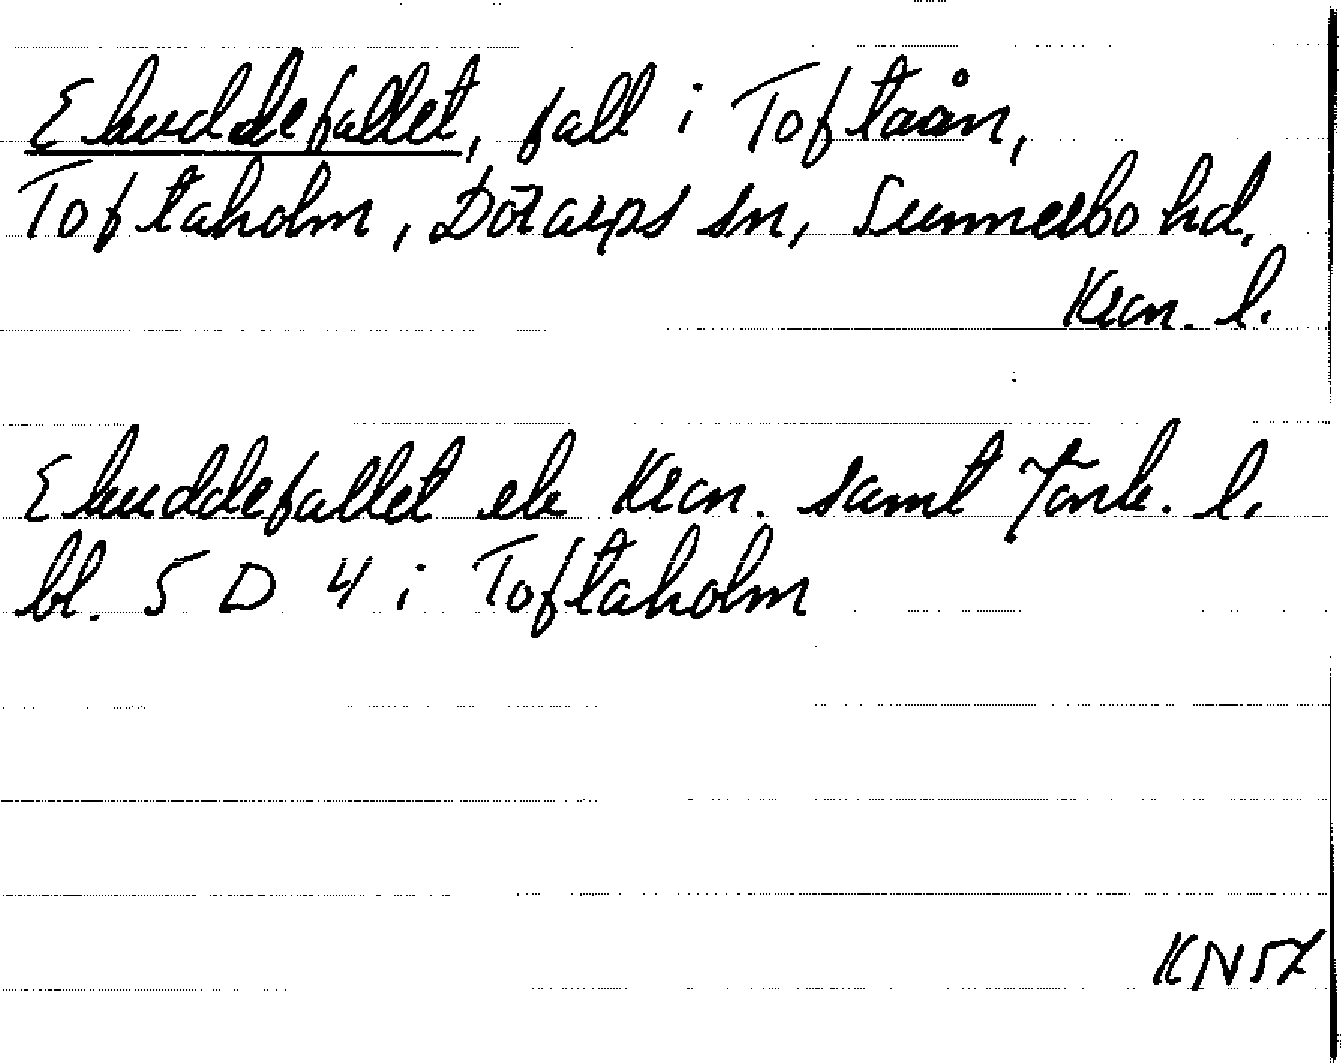 Ekuddefallet, fall i Toftaån,
Toftaholm, Dörarps sn, Sunnerbo hd.
Kron. l.
Ekuddefallet ek Kron. samt Jönk. l.
bl. 5 D 4 i Toftaholm
KN57